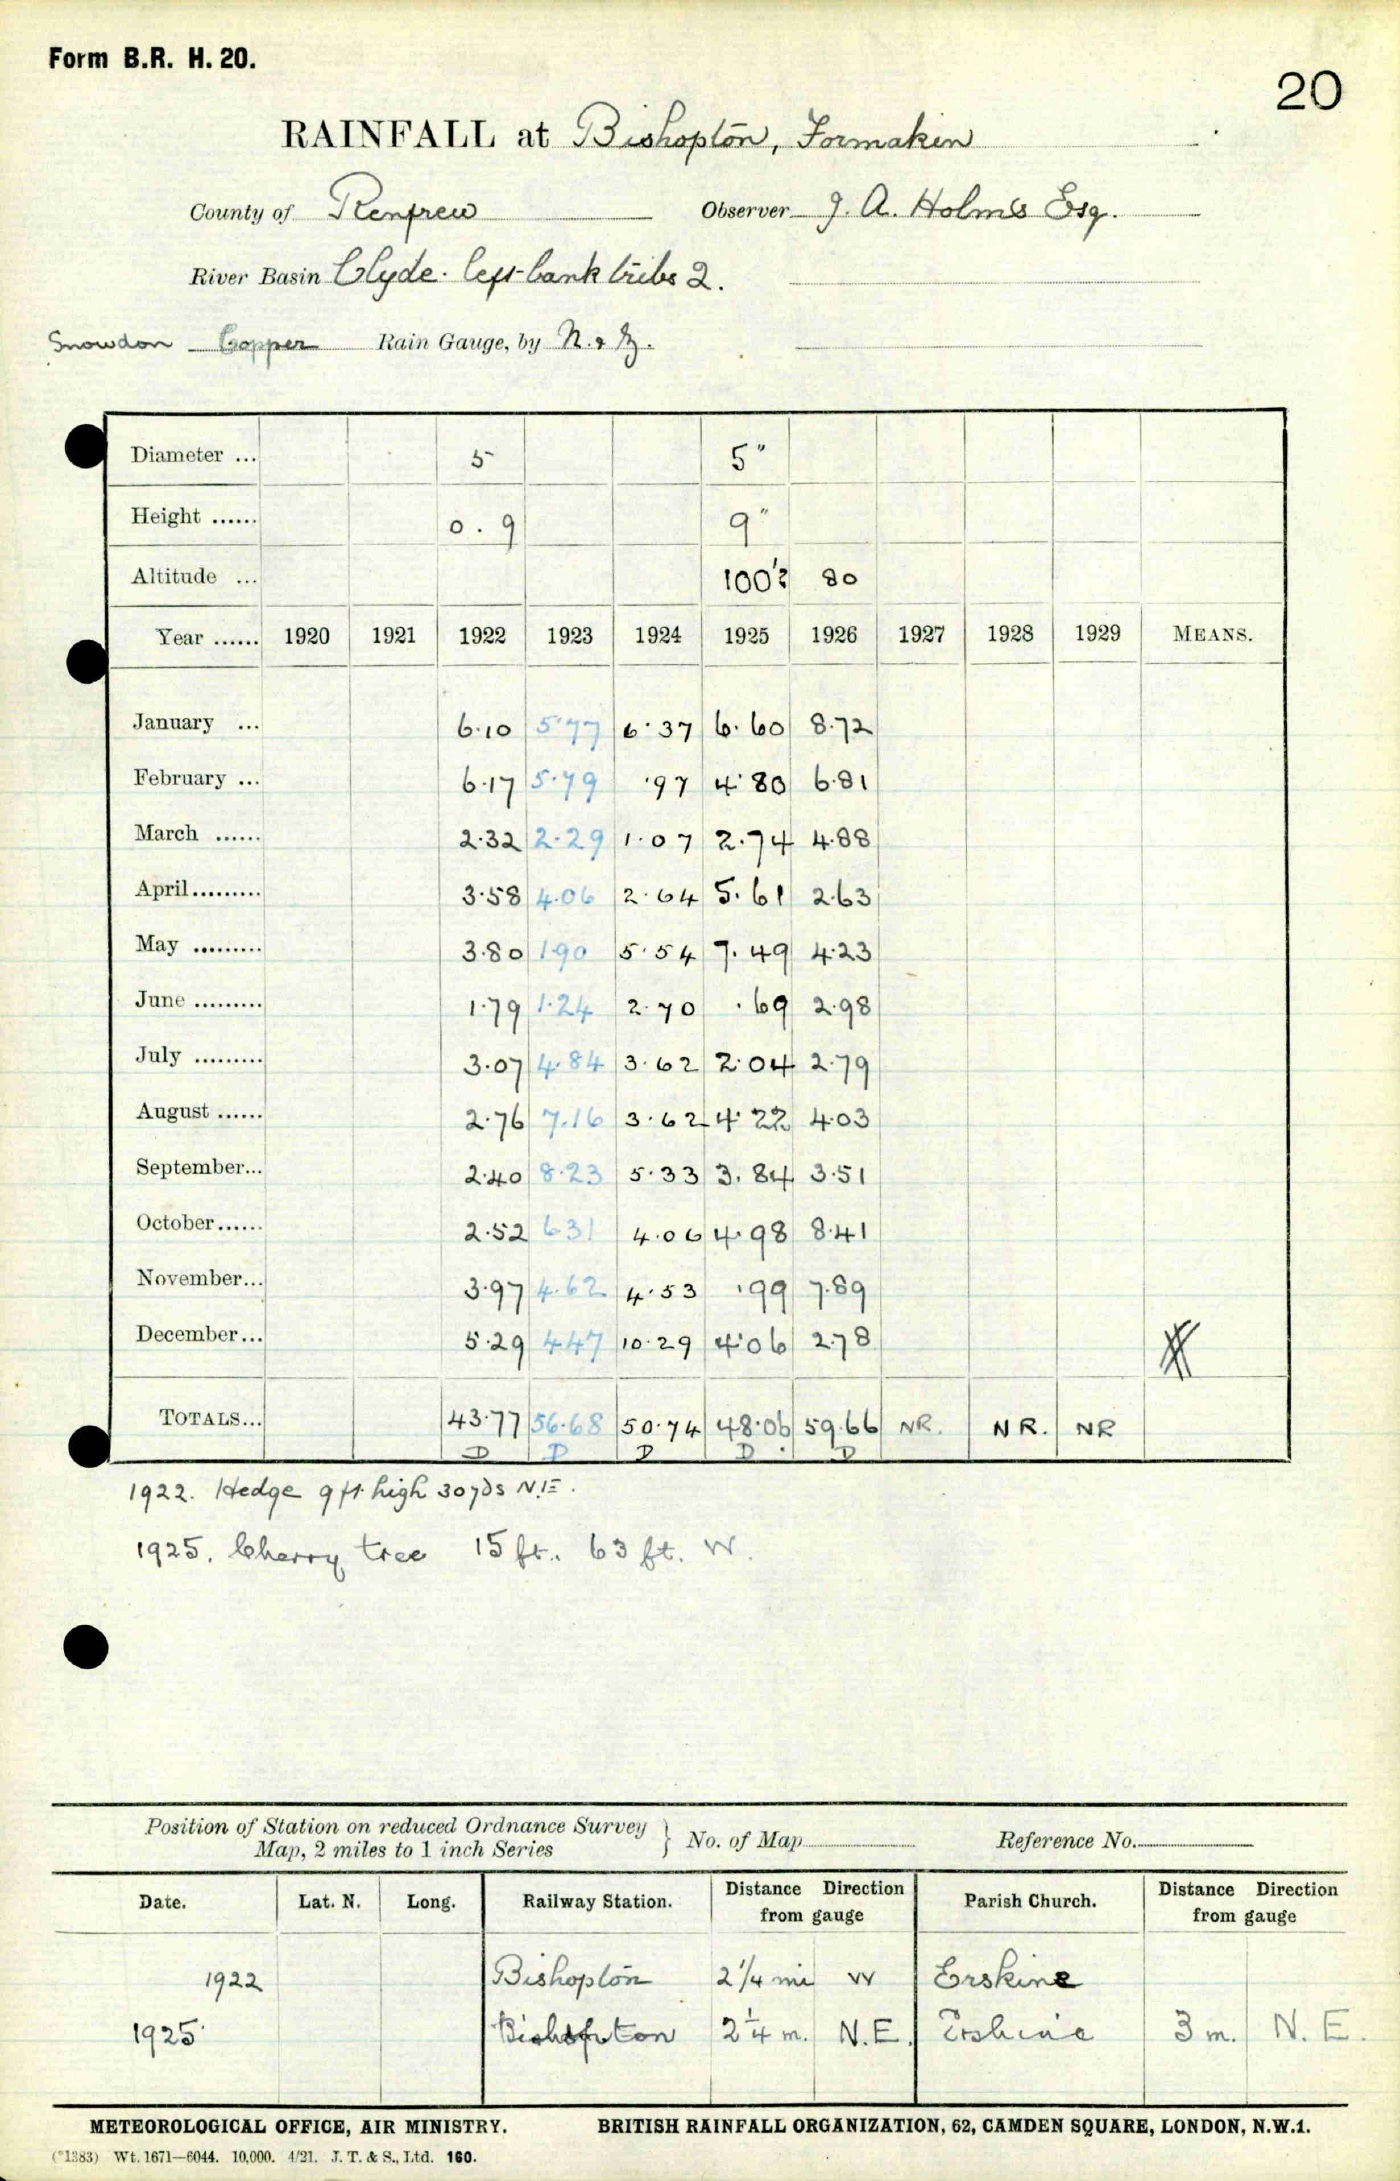 Form B.R. H. 20.
20
RAINFALL at Bishopton, Formakin
County of Renfrew Observer J. A. Holms Esq.
River Basin Clyde. left bank tribs 2.
Snowdon Copper Rain Gauge, by N. & Z.
Diameter ... 5 5"
Height ...... 0.9 9"
Altitude ... 100'? 80
Year ...... 1920 1921 1922 1923 1924 1925 1926 1927 1928 1929 MEANS.
January ... 6.10 5.77 6.37 6.60 8.72
February ... 6.17 5.79 .97 4.80 6.81
March ...... 2.32 2.29 1.07 2.74 4.88
April......... 3.58 4.06 2.64 5.61 2.63
May ......... 3.80 1.90 5.54 7.49 4.23
June ......... 1.79 1.24 2.70 .69 2.98
July ......... 3.07 4.84 3.62 2.04 2.79
August ...... 2.76 7.16 3.62 4.22 4.03
September... 2.40 8.23 5.33 3.84 3.51
October...... 2.52 6.31 4.06 4.98 8.41
November... 3.97 4.62 4.53 .99 7.89
December... 5.29 4.47 10.29 4.06 2.78
TOTALS... 43.77 56.68 50.74 48.06 59.66 NR. NR. NR
D D D D D
1922. Hedge 9 ft. high 30 yds N.E.
1925. Cherry tree 15 ft. 63 ft. W.
Position of Station on reduced Ordnance Survey
Map, 2 miles to 1 inch Series } No. of Map Reference No.
Date. Lat. N. Long. Railway Station. Distance Direction from gauge Parish Church. Distance Direction from gauge
1922 Bishopton 2 1/4 mi W Erskine
1925 Bishopton 2 1/4 m. N.E. Erskine 3 m. N. E.
METEOROLOGICAL OFFICE, AIR MINISTRY. BRITISH RAINFALL ORGANIZATION, 62, CAMDEN SQUARE, LONDON, N.W.1.
(*1383) Wt. 1671—6044. 10,000. 4/21. J. T. & S., Ltd. 160.